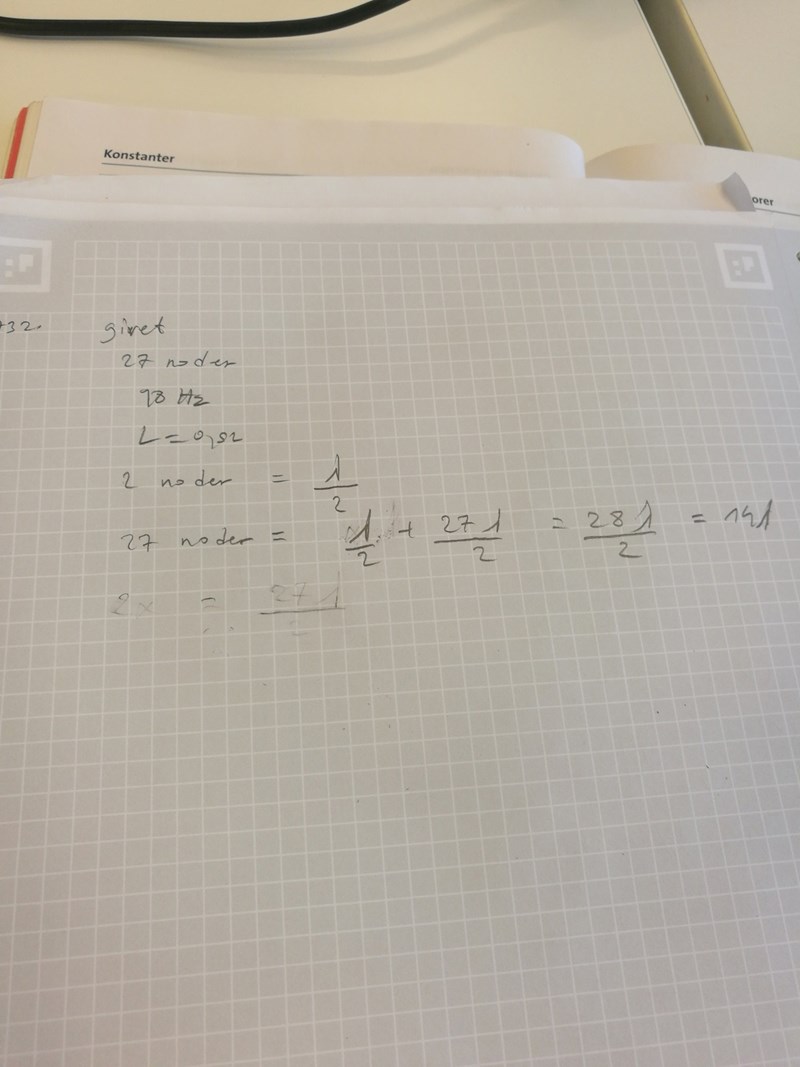 Konstanter
orer
32. givet
27 noder
98 Hz
L = 0,82
2 noder = λ/2
27 noder = λ/2 + 27λ/2 = 28λ/2 = 14λ
2x = 27λ